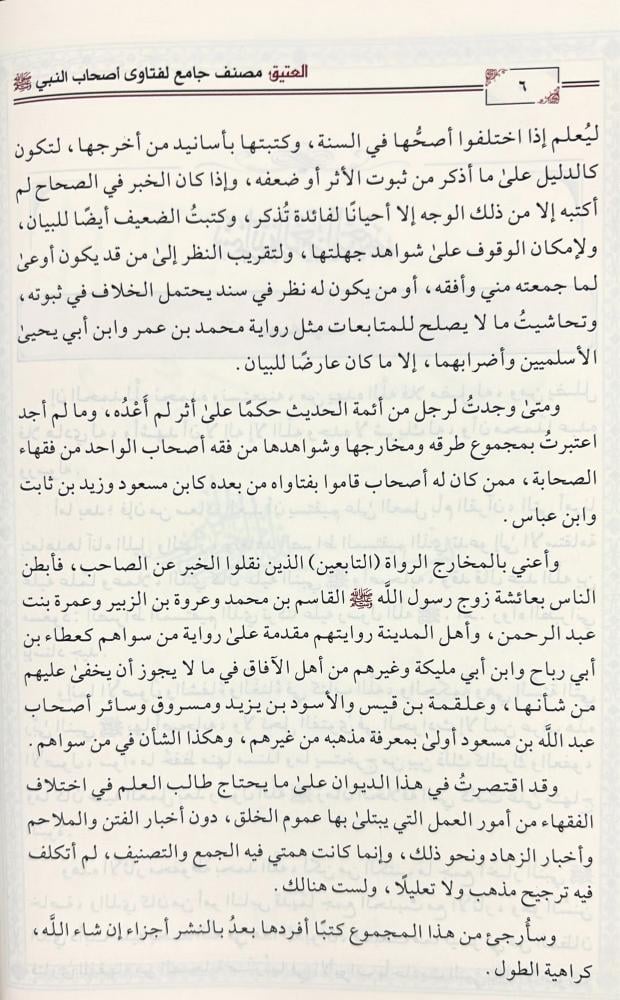 العتيق مصنف جامع لفتاوى أصحاب النبي ﷺ
٦
ليُعلم إذا اختلفوا أصحُّها في السنة، وكتبتها بأسانيد من أخرجها، لتكون
كالدليل علىٰ ما أذكر من ثبوت الأثر أو ضعفه، وإذا كان الخبر في الصحاح لم
أكتبه إلا من ذلك الوجه إلا أحيانًا لفائدة تُذكر، وكتبتُ الضعيف أيضًا للبيان،
ولإمكان الوقوف علىٰ شواهد جهلتها، ولتقريب النظر إلىٰ من قد يكون أوعىٰ
لما جمعته مني وأفقه، أو من يكون له نظر في سند يحتمل الخلاف في ثبوته،
وتحاشيتُ ما لا يصلح للمتابعات مثل رواية محمد بن عمر وابن أبي يحيىٰ
الأسلميين وأضرابهما، إلا ما كان عارضًا للبيان.
ومتىٰ وجدتُ لرجل من أئمة الحديث حكمًا علىٰ أثر لم أَعْدُه، وما لم أجد
اعتبرتُ بمجموع طرقه ومخارجها وشواهدها من فقه أصحاب الواحد من فقهاء
الصحابة، ممن كان له أصحاب قاموا بفتاواه من بعده كابن مسعود وزيد بن ثابت
وابن عباس.
وأعني بالمخارج الرواة (التابعين) الذين نقلوا الخبر عن الصاحب، فأبطن
الناس بعائشة زوج رسول اللَّه ﷺ القاسم بن محمد وعروة بن الزبير وعمرة بنت
عبد الرحمن، وأهل المدينة روايتهم مقدمة علىٰ رواية من سواهم كعطاء بن
أبي رباح وابن أبي مليكة وغيرهم من أهل الآفاق في ما لا يجوز أن يخفىٰ عليهم
من شأنها، وعلقمة بن قيس والأسود بن يزيد ومسروق وسائر أصحاب
عبد اللَّه بن مسعود أولىٰ بمعرفة مذهبه من غيرهم، وهكذا الشأن في من سواهم.
وقد اقتصرتُ في هذا الديوان علىٰ ما يحتاج طالب العلم في اختلاف
الفقهاء من أمور العمل التي يبتلىٰ بها عموم الخلق، دون أخبار الفتن والملاحم
وأخبار الزهاد ونحو ذلك، وإنما كانت همتي فيه الجمع والتصنيف، لم أتكلف
فيه ترجيح مذهب ولا تعليلًا، ولست هنالك.
وسأُرجئ من هذا المجموع كتبًا أفردها بعدُ بالنشر أجزاء إن شاء اللَّه،
كراهية الطول.